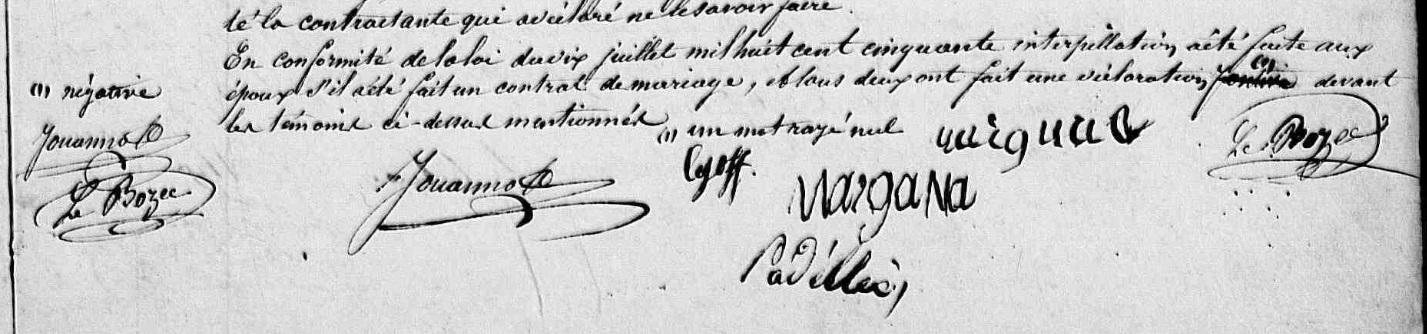 té la contractante qui a déclaré ne le savoir faire.
En conformité de la loi du dix juillet mil huit cent cinquante interpellation a été faite aux
époux s'il a été fait un contrat de mariage, et tous deux ont fait une déclaration (1) devant
les témoins ci-dessus mentionnés (1) un mot rayé nul
(1) négative
Jouannot
Le Bozec
Jouannot
Le goff.
Margana
Le Bozec